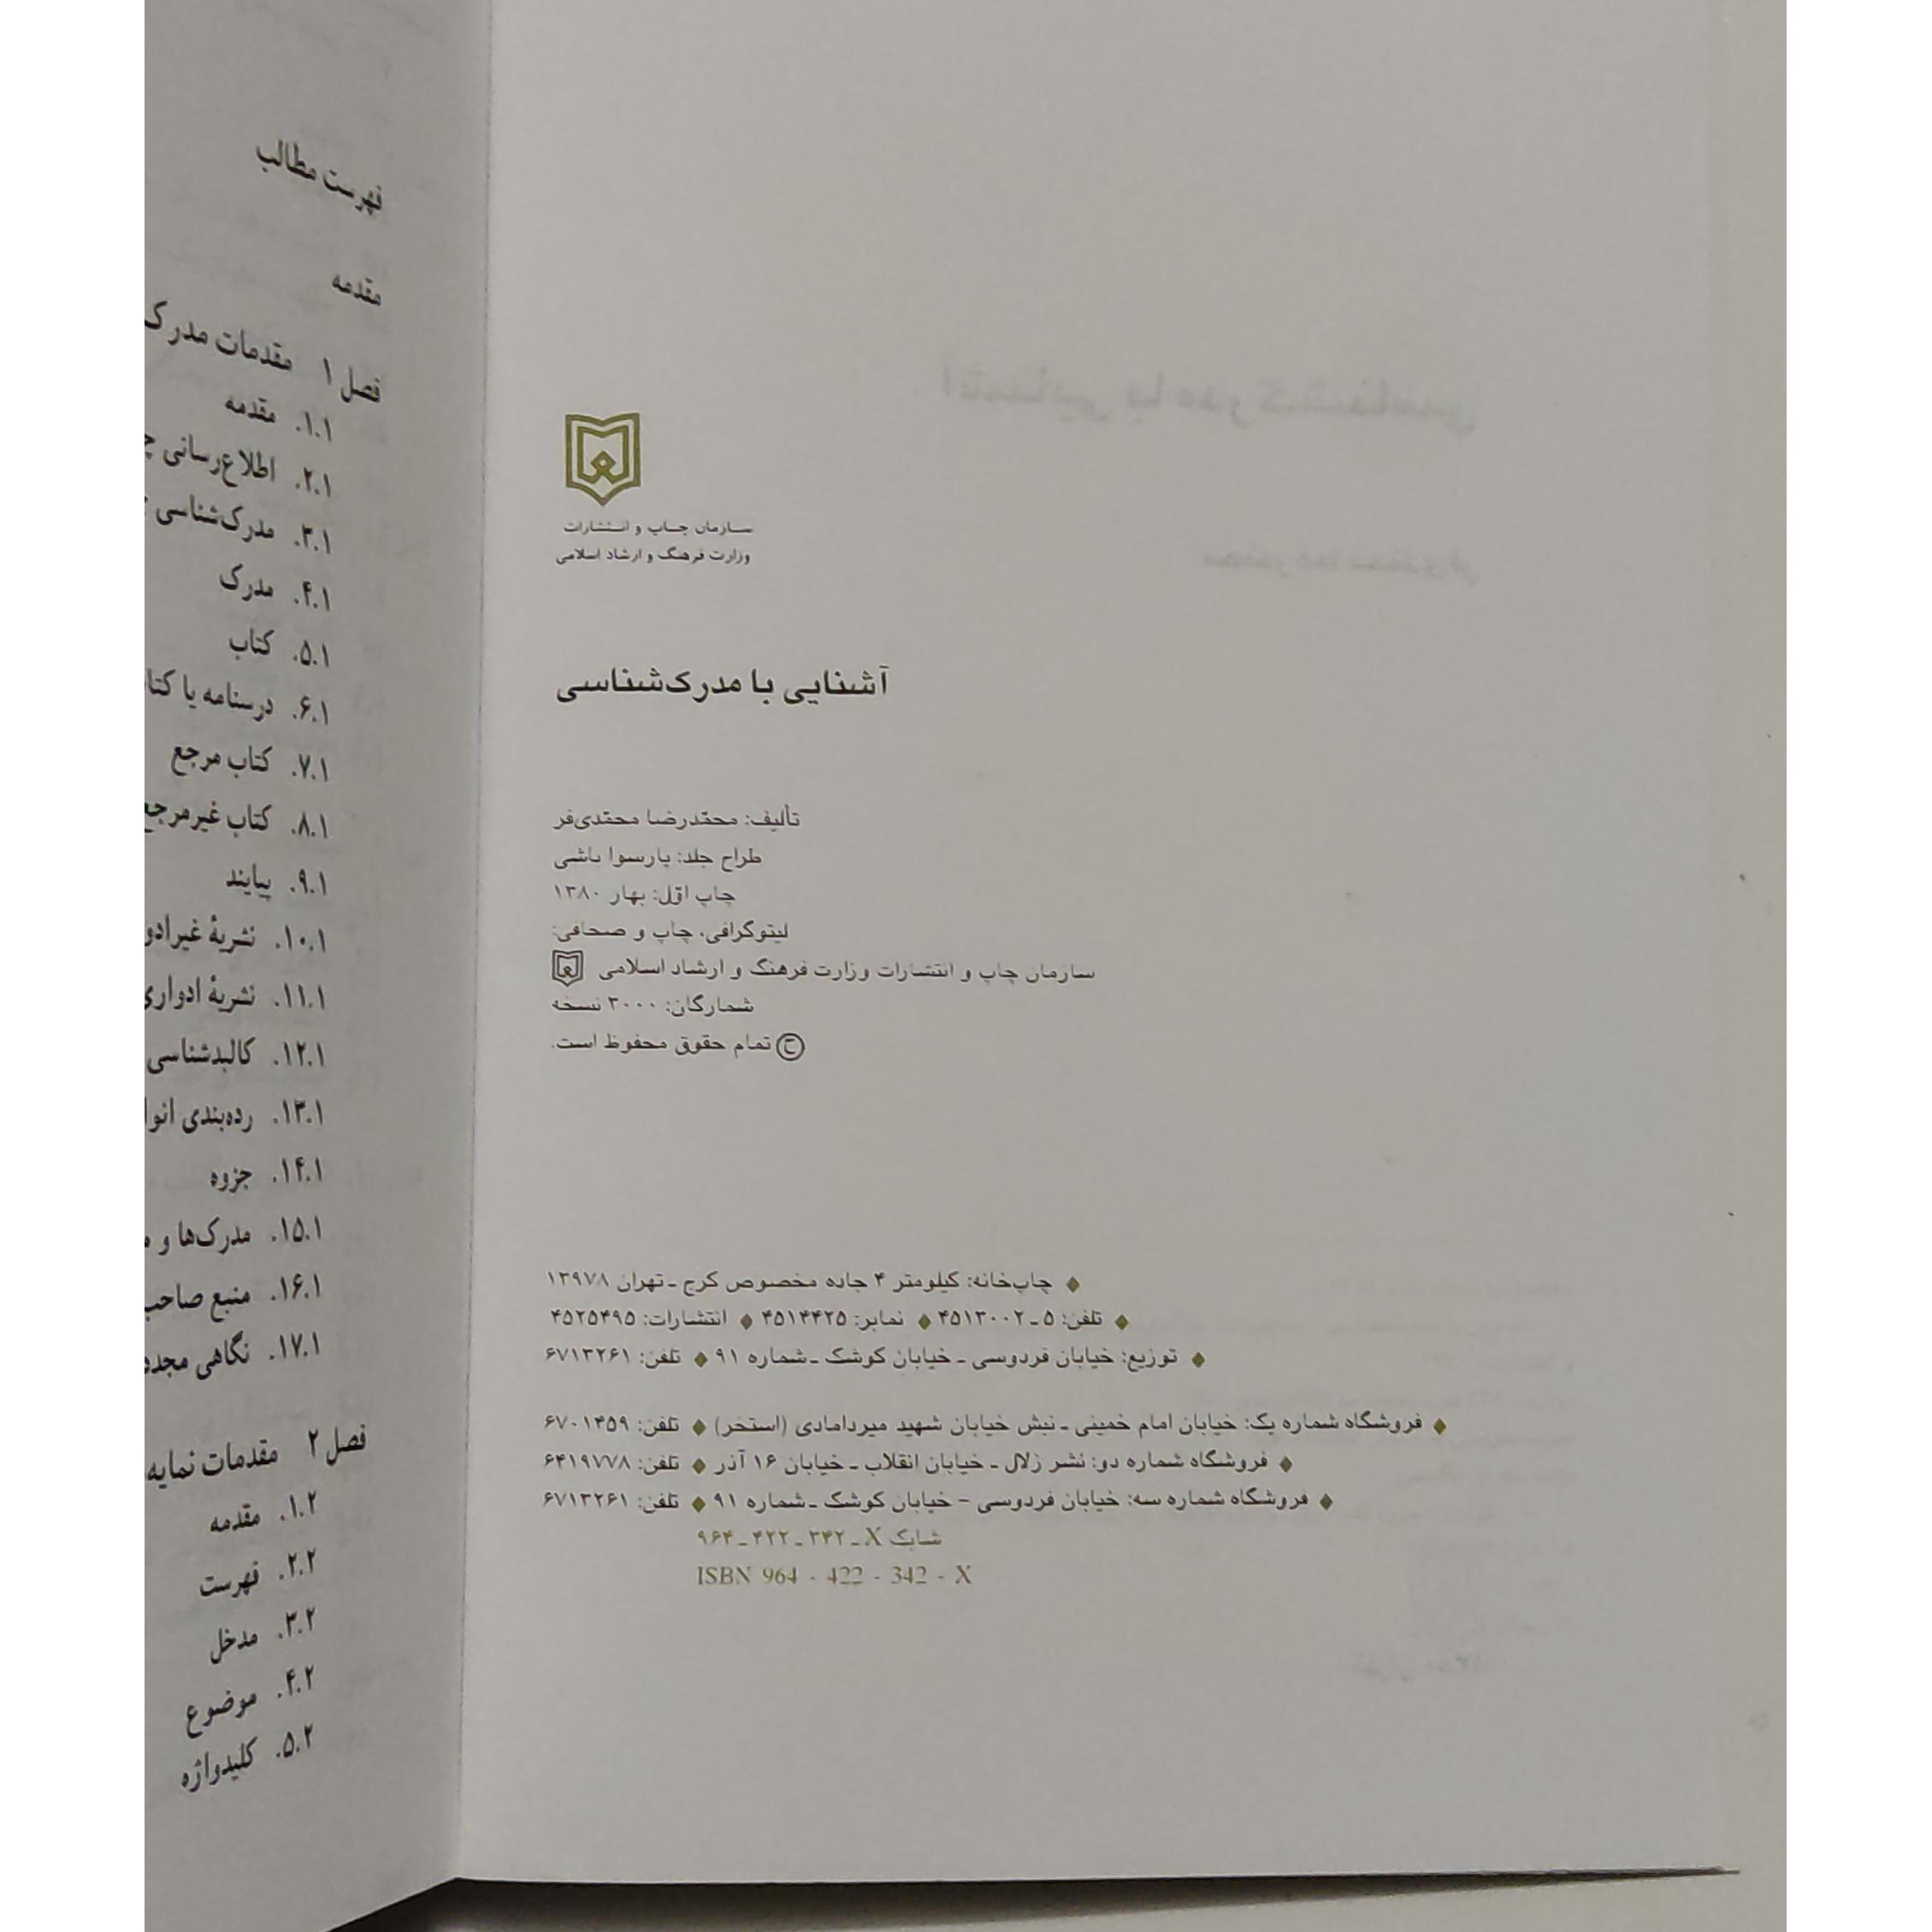 سازمان چاپ و انتشارات
وزارت فرهنگ و ارشاد اسلامی
آشنایی با مدرک‌شناسی
تألیف: محمّدرضا محمّدی‌فر
طراح جلد: پارسوا باشی
چاپ اوّل: بهار ۱۳۸۰
لیتوگرافی، چاپ و صحافی:
سازمان چاپ و انتشارات وزارت فرهنگ و ارشاد اسلامی
شمارگان: ۳۰۰۰ نسخه
© تمام حقوق محفوظ است.
◆ چاپ‌خانه: کیلومتر ۴ جاده مخصوص کرج ـ تهران ۱۳۹۷۸
◆ تلفن: ۵ ـ ۴۵۱۳۰۰۲ ◆ نمابر: ۴۵۱۴۴۲۵ ◆ انتشارات: ۴۵۲۵۴۹۵
◆ توزیع: خیابان فردوسی ـ خیابان کوشک ـ شماره ۹۱ ◆ تلفن: ۶۷۱۳۲۶۱
◆ فروشگاه شماره یک: خیابان امام خمینی ـ نبش خیابان شهید میردامادی (استخر) ◆ تلفن: ۶۷۰۱۴۵۹
◆ فروشگاه شماره دو: نشر زلال ـ خیابان انقلاب ـ خیابان ۱۶ آذر ◆ تلفن: ۶۴۱۹۷۷۸
◆ فروشگاه شماره سه: خیابان فردوسی – خیابان کوشک ـ شماره ۹۱ ◆ تلفن: ۶۷۱۳۲۶۱
شابک X ـ ۳۴۲ ـ ۴۲۲ ـ ۹۶۴
ISBN 964 - 422 - 342 - X
فهرست مطالب
مقدمه
فصل ۱ مقدمات مدرک
۱.۱. مقدمه
۲.۱. اطلاع‌رسانی
۳.۱. مدرک‌شناسی
۴.۱. مدرک
۵.۱. کتاب
۶.۱. درسنامه یا کتا
۷.۱. کتاب مرجع
۸.۱. کتاب غیرمرجع
۹.۱. پیایند
۱۰.۱. نشریهٔ غیرادو
۱۱.۱. نشریهٔ ادواری
۱۲.۱. کالبدشناسی
۱۳.۱. رده‌بندی انوا
۱۴.۱. جزوه
۱۵.۱. مدرک‌ها و
۱۶.۱. منبع صاحب
۱۷.۱. نگاهی مجدد
فصل ۲ مقدمات نمایه
۱.۲. مقدمه
۲.۲. فهرست
۳.۲. مدخل
۴.۲. موضوع
۵.۲. کلیدواژه